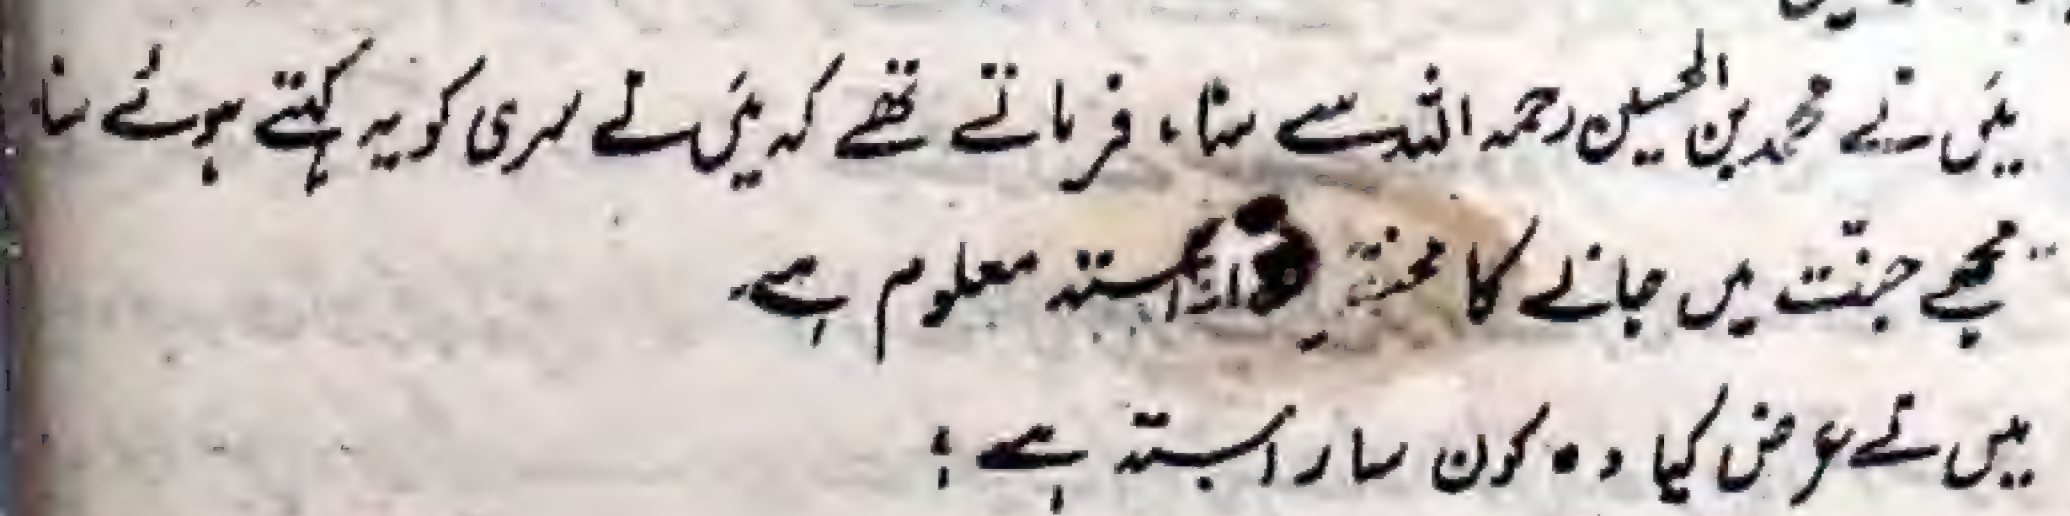 میں نے محمد بن الحسین رحمہ اللہ سے سنا، فرماتے تھے کہ میں نے سری کو یہ کہتے ہوئے سنا،
"مجھے جنت میں جانے کا مختصر راستہ معلوم ہے۔
میں نے عرض کیا وہ کون سا راستہ ہے؟